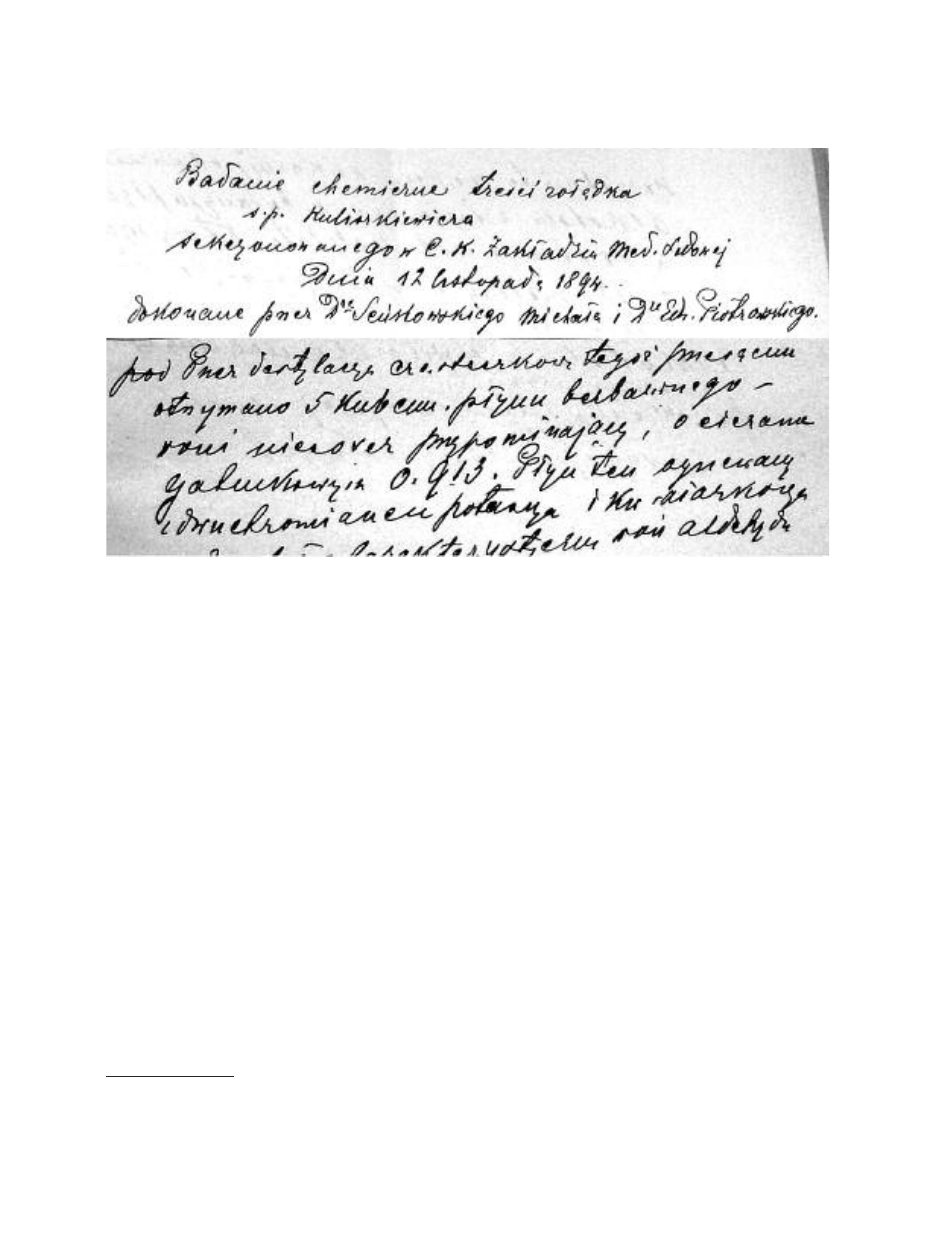 Badanie chemiczne treści żołądka
s.p. Kuliszkiewicza
sekcyonowanego w C. K. Zakładzie Med. Sądowej
Dnia 12 listopada 1894.
dokonane przez Dra Seńkowskiego Michała i Dra Edr. Piotrowskiego.
pod Przez destylacyę cząsteczkową tegoż przesączu
otrzymano 5 Kub cm. płynu bezbarwnego –
woni nieco przypominający, o ciężarze
gatunkowym 0.913. Płyn ten ogrzewany
z dwuchromianem potasu i Kw. siarkowym
charakterystyczną woń aldehydu